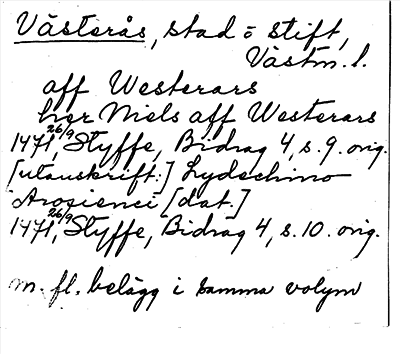 Västerås, stad o stift,
Västm. l.
aff Westerars
her Niels aff Westerars
1471 26/9, Styffe, Bidrag 4, s. 9. orig.
[utanskrift:] Lydechino
Arosienci [dat.]
1471 26/9, Styffe, Bidrag 4, s. 10. orig.
m. fl. belägg i samma volym